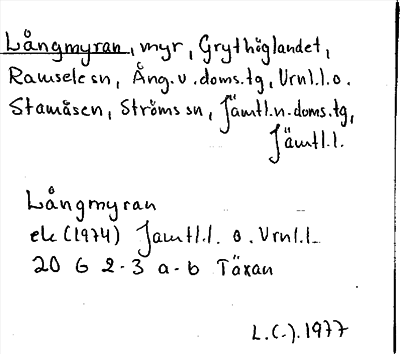 Långmyran, myr, Grythöglandet,
Ramsele sn, Ång. v. doms.tg, Vrnl.l. o.
Stamåsen, Ströms sn, Jämtl.n. doms.tg,
Jämtl.l.
Långmyran
ek (1974) Jämtl.l. o. Vrnl.l.
20 G 2-3 a-b Täxan
L.(-). 1977